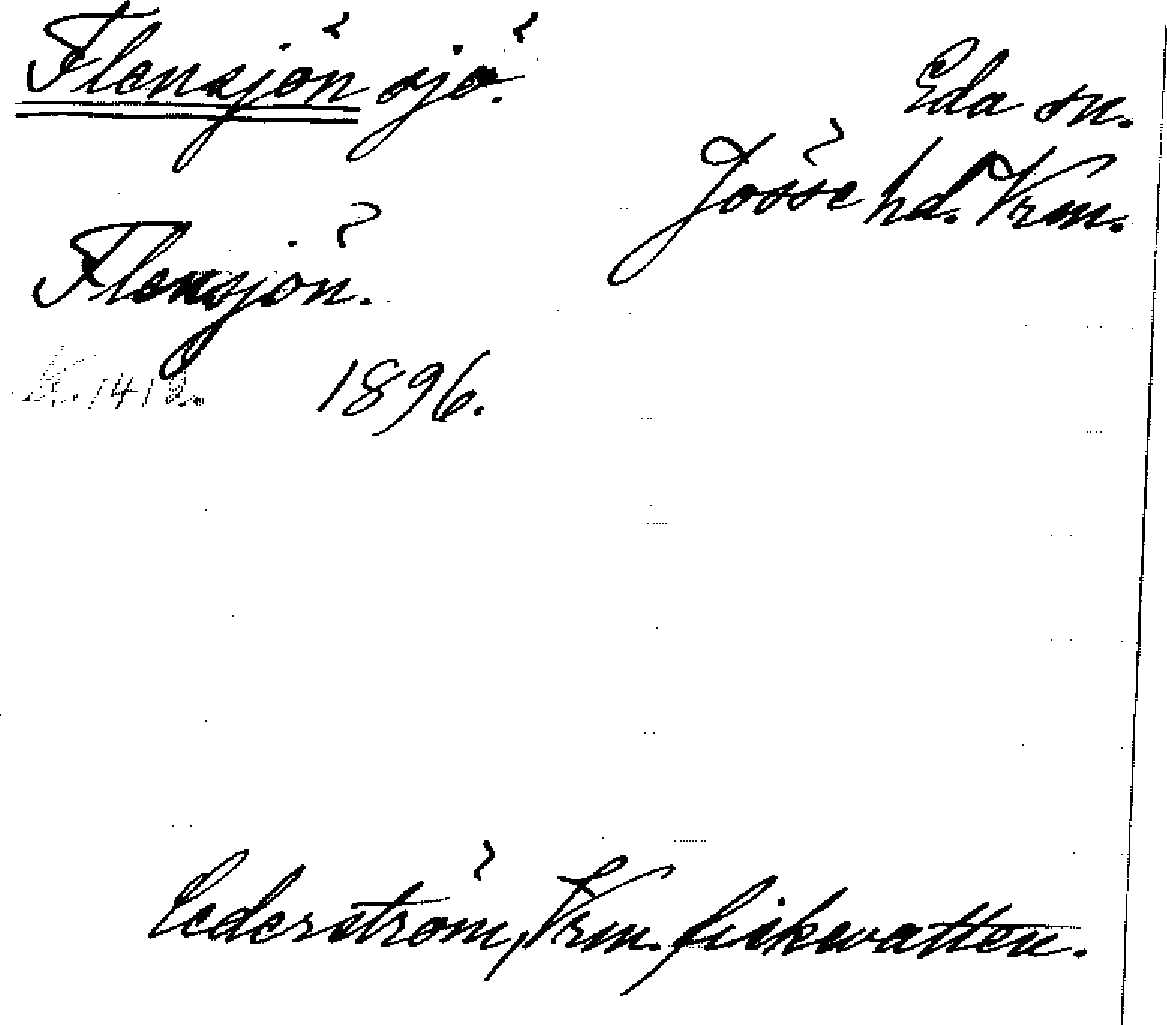 Flensjön sjö.
Eda sn.
Jösse hd. Vrm.
Flensjön.
1896.
Cederström, Vrm. fiskvatten.